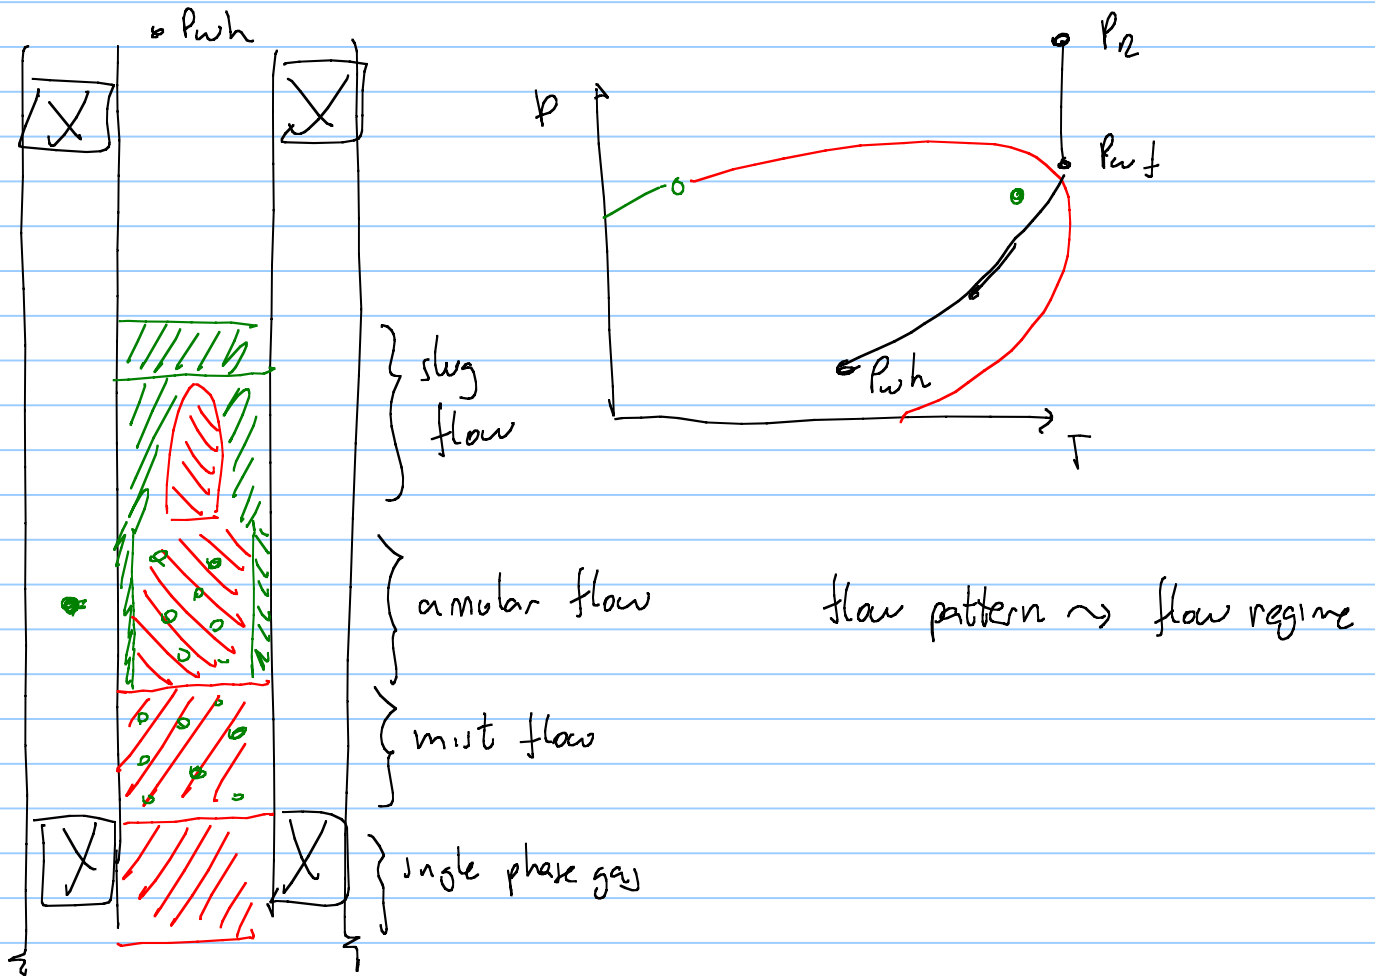 Pwh
PR
p
Pwf
Pwh
T
slug
flow
annular flow
flow pattern ~> flow regime
mist flow
single phase gas